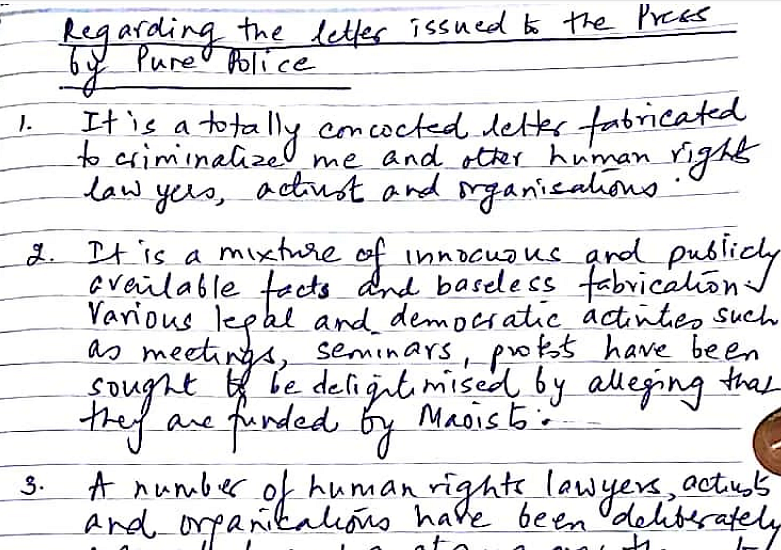 Regarding the letter issued to the Press
by Pune Police
1. It is a totally concocted letter fabricated
to criminalize me and other human right
lawyers, activist and organisations.
2. It is a mixture of innocuous and publicly
available facts and baseless fabrication.
Various legal and democratic activities such
as meetings, seminars, protest have been
sought to be deligitimised by alleging that
they are funded by Maoists.
3. A number of human rights lawyers, activists
and organisations have been deliberately